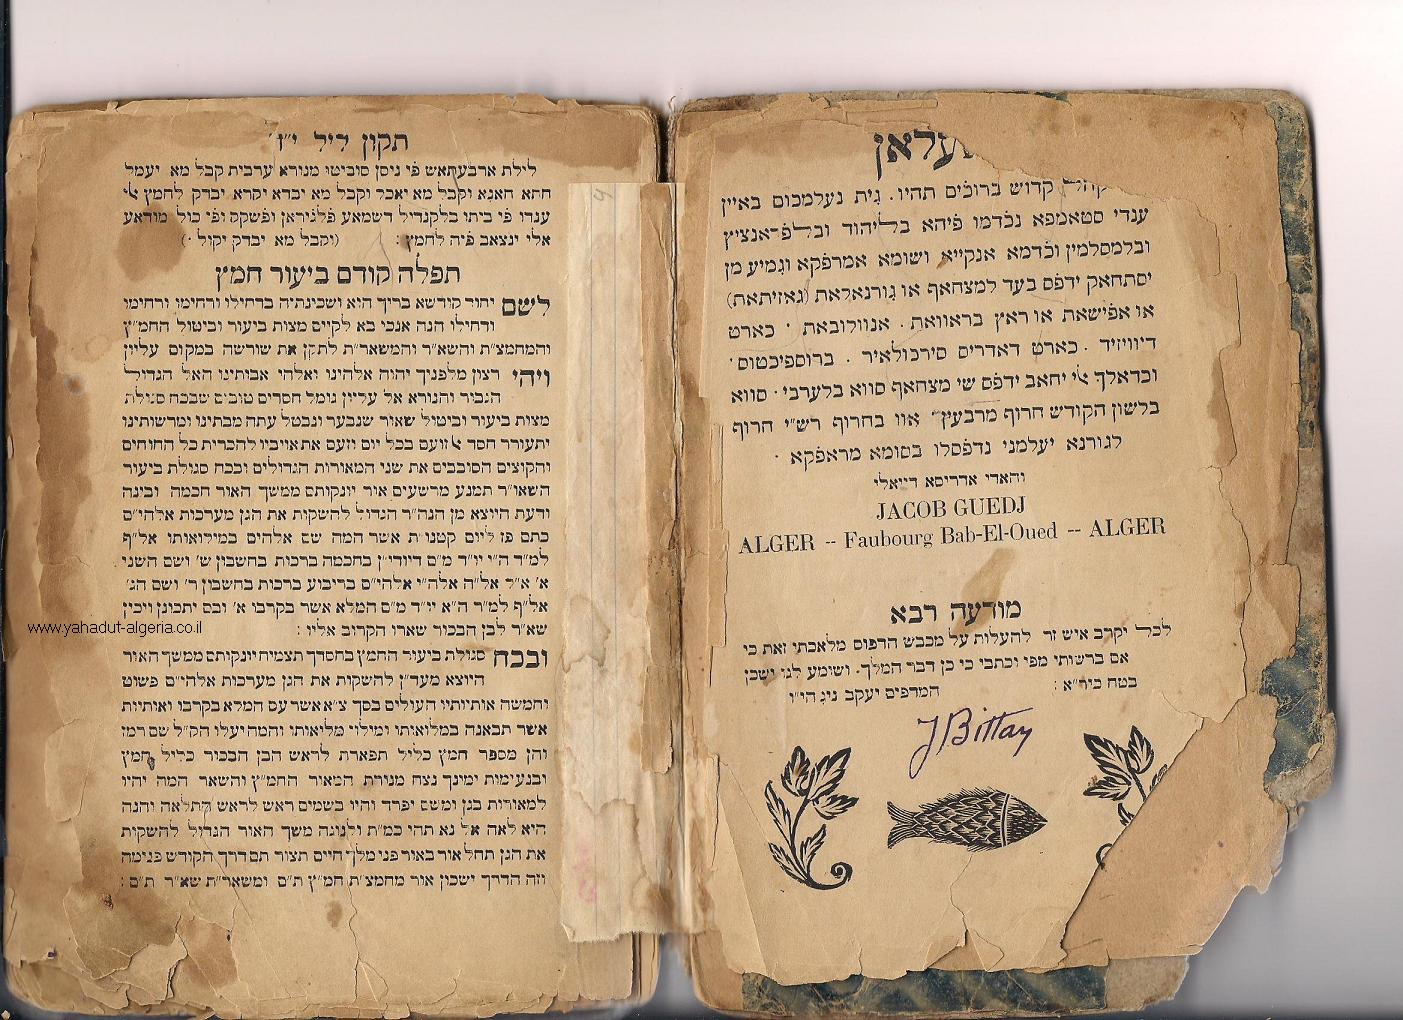 עלאן
קדוש ברוכים תהיו. גית נעלמכום באיין
ענדי סטאמפא נכדמו פיהא בליהוד ובלפראנציץ
ובלמסלמין וכדמא אנקייא ושומא אמרפקא וגמיע מן
יסתחאק ידפס בעד למצחאף או גורנאלאת (גאזיתאת)
או אפישאת או ראץ בראוואת. אנוולובאת. כארט
דיוויזיד. כארט דאדריס סירכולאיר. ברוספיכטוס.
וכדאלך אלי יחאב ידפס שי מצחאף סווא בלערבי. סווא
בלשון הקודש חרוף מרבעין אוו בחרוף רש״י חרוף
לגורנא יעלמני נדפסלו בסומא מראפקא.
והאדי אדריסא דייאלי
JACOB GUEDJ
ALGER -- Faubourg Bab-El-Oued -- ALGER
מודעה רבא
לבל יקרב איש זר להעלות על מכבש הדפוס מלאכתי זאת כי
אם ברשותי מפי וכתבי כי כן דבר המלך. ושומע לנו ישכון
בטח כיר״א :
המדפיס יעקב גיג הי״ו
J Bittan
תקון ליל י״ד
לילת ארבעתאש פי ניסן סוביטו מנורא ערבית קבל מא יעמל
חתא חאגא וקבל מא יאכל וקבל מא יברא יקרא יבדק לחמץ אלי
ענדו פי ביתו בלקנדיל דשמאע פלגיראן ופשקק ופי כול מודאע
אלי ינצאב פיה לחמץ : (וקבל מא יבדק יקול.)
תפלה קודם ביעור חמץ
לשם יחוד קודשא בריך הוא ושכינתיה בדחילו ורחימו ורחימו
ודחילו הנה אנכי בא לקיים מצות ביעור וביטול החמ״ץ
והמחמצ״ת והשא״ר והמשאר״ת לתקן את שורשה במקום עליון
ויהי רצון מלפניך יהוה אלהינו ואלהי אבותינו האל הגדול
הגבור והנורא אל עליון גומל חסדים טובים שבכח סגולת
מצות ביעור וביטול שאור שנבער ונבטל עתה מבתינו ומרשותינו
יתעורר חסד אל זועם בכל יום וזעם את אוייביו להכרית כל החוחים
והקוצים הסובבים את שני המאורות הגדולים ובכח סגולת ביעור
השאו״ר תמנע מרשעים אור יונקותם ממשך האור חכמה ובינה
ודעת היוצא מן הנה״ר הגדול להשקות את הגן מערכות אלהי״ם
כתם פז ליום קטנו״ת אשר המה שם אלהים במילואותו אל״ף
למ״ד ה״י יו״ד מ״ם דיודי״ן בחכמה ברכות בחשבון ש׳ ושם השני
א׳ א״ל אל״ה אלה״י אלהי״ם בריבוע ברכות בחשבון ר׳ ושם הג׳
אל״ף למ״ד ה״א יו״ד מ״ם המלא אשר בקרבו א׳ ובם יתכונן ויכין
שא״ר לבן הבכור שארו הקרוב אליו :
www.yahadut-algeria.co.il
ובכח סגולת ביעור החמץ בחסדך תצמיח יונקותם ממשך האור
היוצא מעד״ן להשקות את הגן מערכות אלהי״ם פשוט
וחמשה אותיותיו העולים בסך צ״א אשר עם המלא בקרבו ואותיות
אשר תבאנה במלואותו ומילוי מליאותו והמה יעלו הק״ל שם רמז
והן מספר חמץ כליל תפארת לראש הבן הבכור כליל חמץ
ובנעימות ימינך נצח מנורת המאור החמ״ץ והשאר המה יהיו
למאורות בגן ומשם יפרד והיו בשמים ראש לראש התלאה והנה
היא לאה אל נא תהי כמ״ת ולנוגה משך האור הגדול להשקות
את הגן תחל אור באור פני מלך חיים תצור תם דרך הקודש פנימה
וזה הדרך ישכון אור מחמצ״ת חמ״ץ ת״ם ומשאר״ת שא״ר ת״ם :